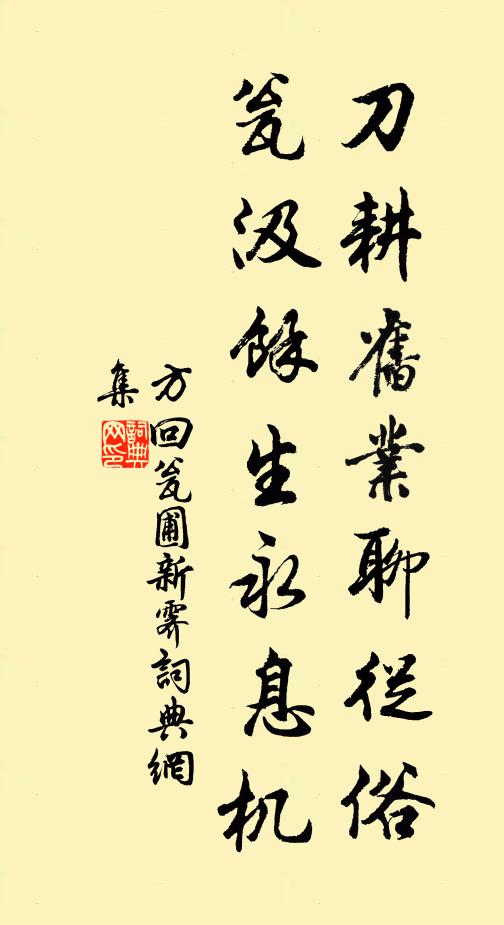 刀耕舊業聊從俗
瓮汲餘生永息机
方回瓮圃新霽詞典網
集
詞典
网印